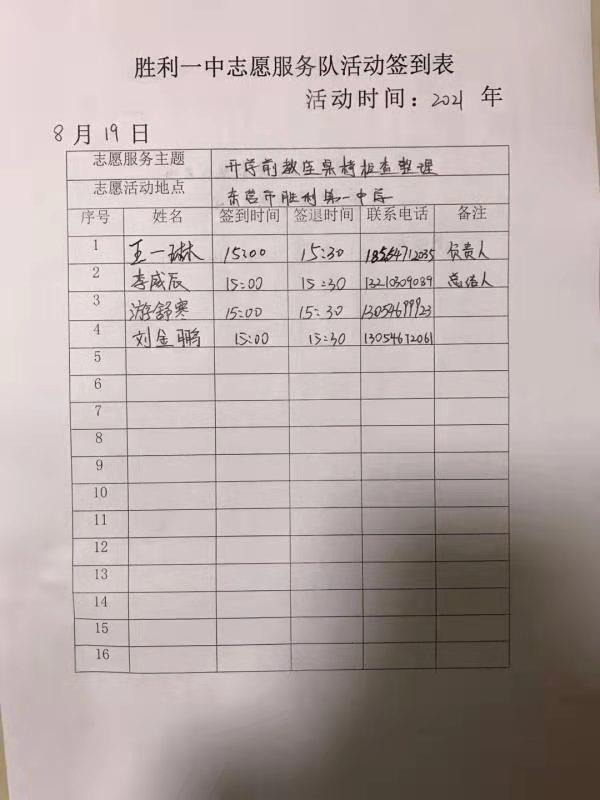 胜利一中志愿服务队活动签到表
活动时间：2021 年
8月19日
志愿服务主题 开学前教室桌椅检查整理
志愿活动地点 东营市胜利第一中学
序号 姓名 签到时间 签退时间 联系电话 备注
1 王一琳 15:00 15:30 18554712035 负责人
2 李成辰 15:00 15:30 13210309039 总结人
3 游舒寒 15:00 15:30 13054699923
4 刘金鹏 15:00 15:30 13054672061
5
6
7
8
9
10
11
12
13
14
15
16